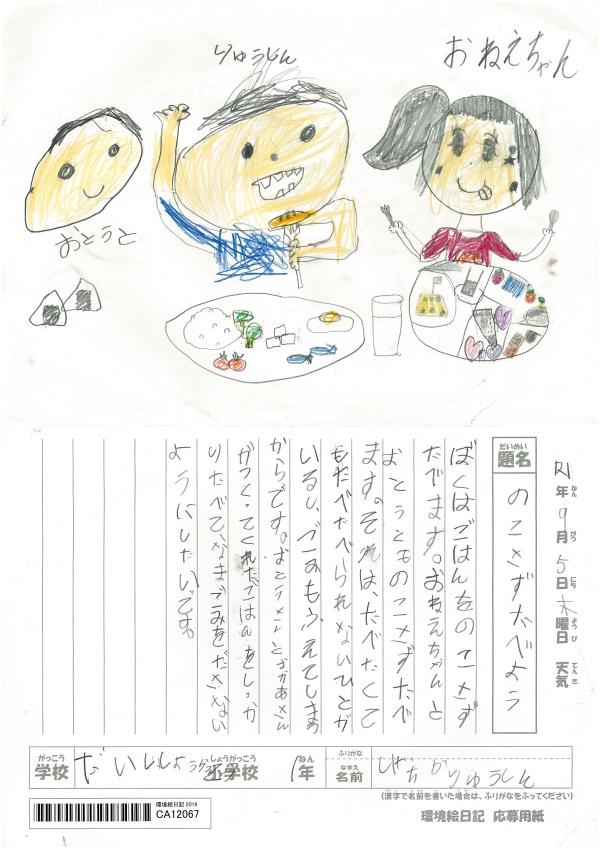 りゅうしん
おねえちゃん
おとうと
R1年9月5日木曜日 天気
ねん がつ にち ようび てんき
だいめい
題名
のこさずたべよう
ぼくはごはんをのこさず
たべます。おねえちゃんと
おとうとものこさずたべ
ます。それは、たべたくて
もたべられないひとが
いるし、ごみもふえてしまう
からです。おとうさんとおかあさん
がつくってくれたごはんをしっか
りたべてなまごみをださない
ようにしたいです。
がっこう
学校
しょうがっこう
小学校
1年
ねん
ふりがな
なまえ
名前
りゅうしん
(漢字で名前を書いた場合は、ふりがなをふってください)
環境絵日記 2019
CA12067
環境絵日記 応募用紙